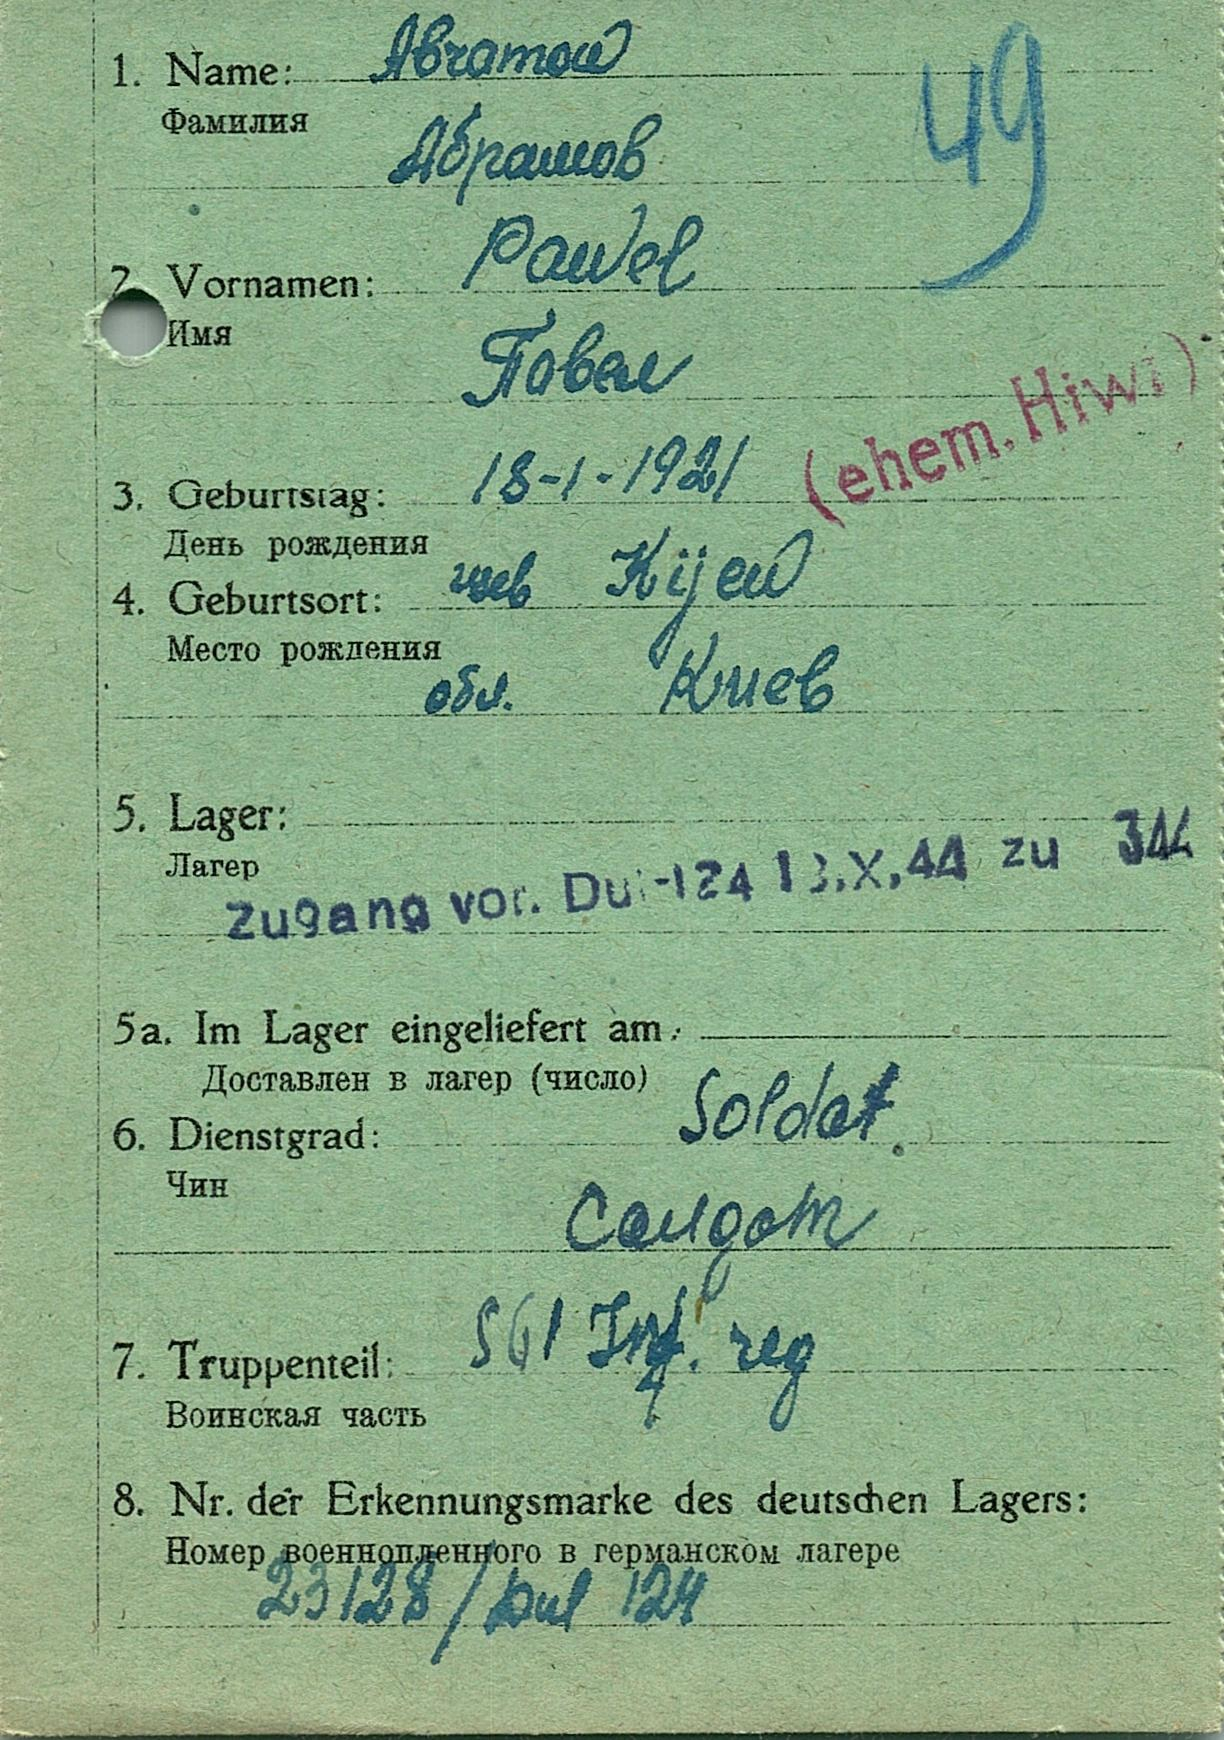 1. Name: Abramow
Фамилия
Абрамов
49
2. Vornamen: Pawel
Имя
Павел
(ehem. Hiwi)
3. Geburtstag: 18-1-1921
День рождения
4. Geburtsort: Kijew
Место рождения
обл. Киев
5. Lager:
Лагер
Zugang vor. Dul-124 13.X.44 zu
5a. Im Lager eingeliefert am:
Доставлен в лагер (число)
6. Dienstgrad: Soldat.
Чин
Салдат
7. Truppenteil: 561 Inf. reg
Воинская часть
8. Nr. der Erkennungsmarke des deutschen Lagers:
Номер военнопленного в германском лагере
23128/Dul 124